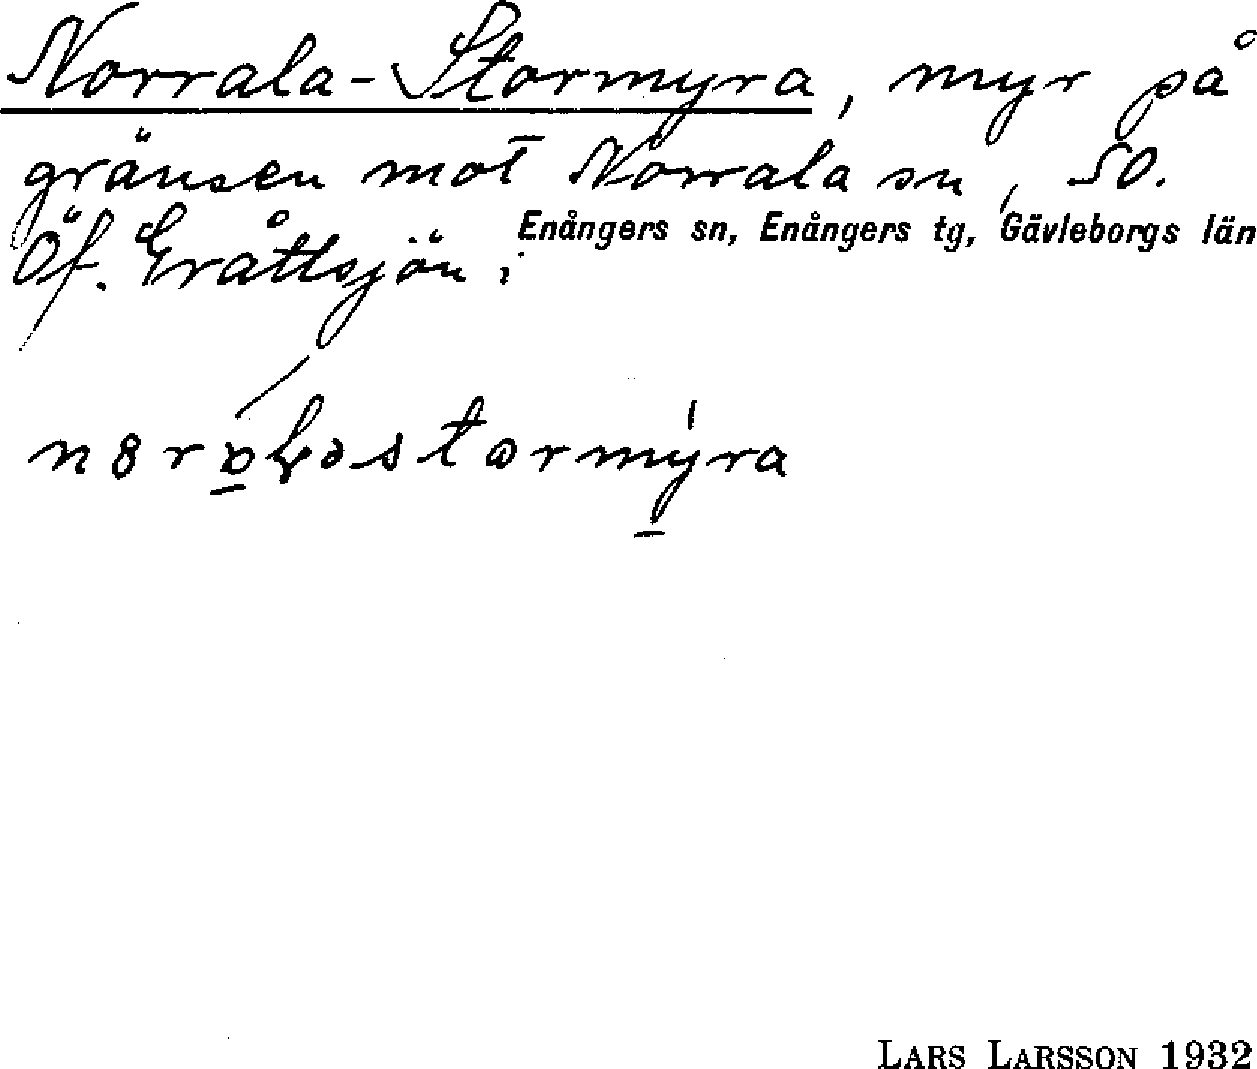 Norrala-Stormyra, myr på
gränsen mot Norrala sn, SO.
Öf. Gråttsjön i
Enångers sn, Enångers tg, Gävleborgs län
LARS LARSSON 1932